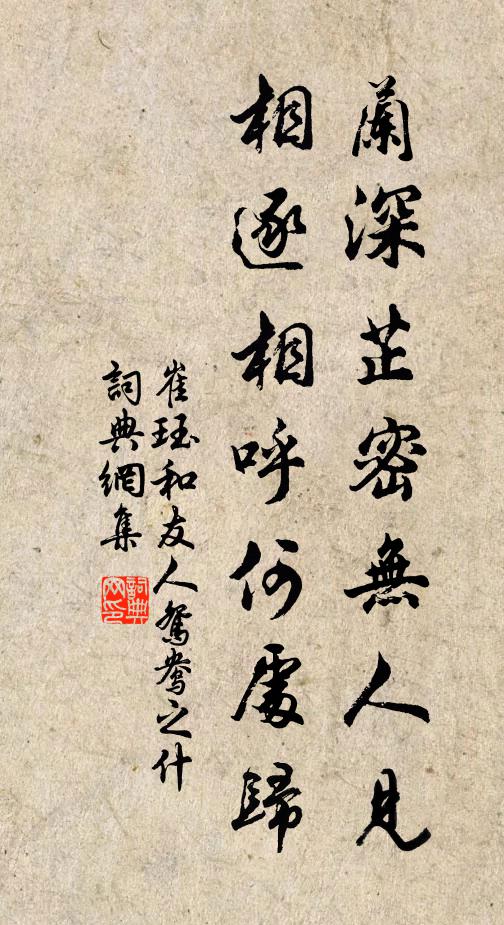 蘭深芷密無人見
相逐相呼何處歸
崔珏和友人鴛鴦之什
詞典網集
詞典